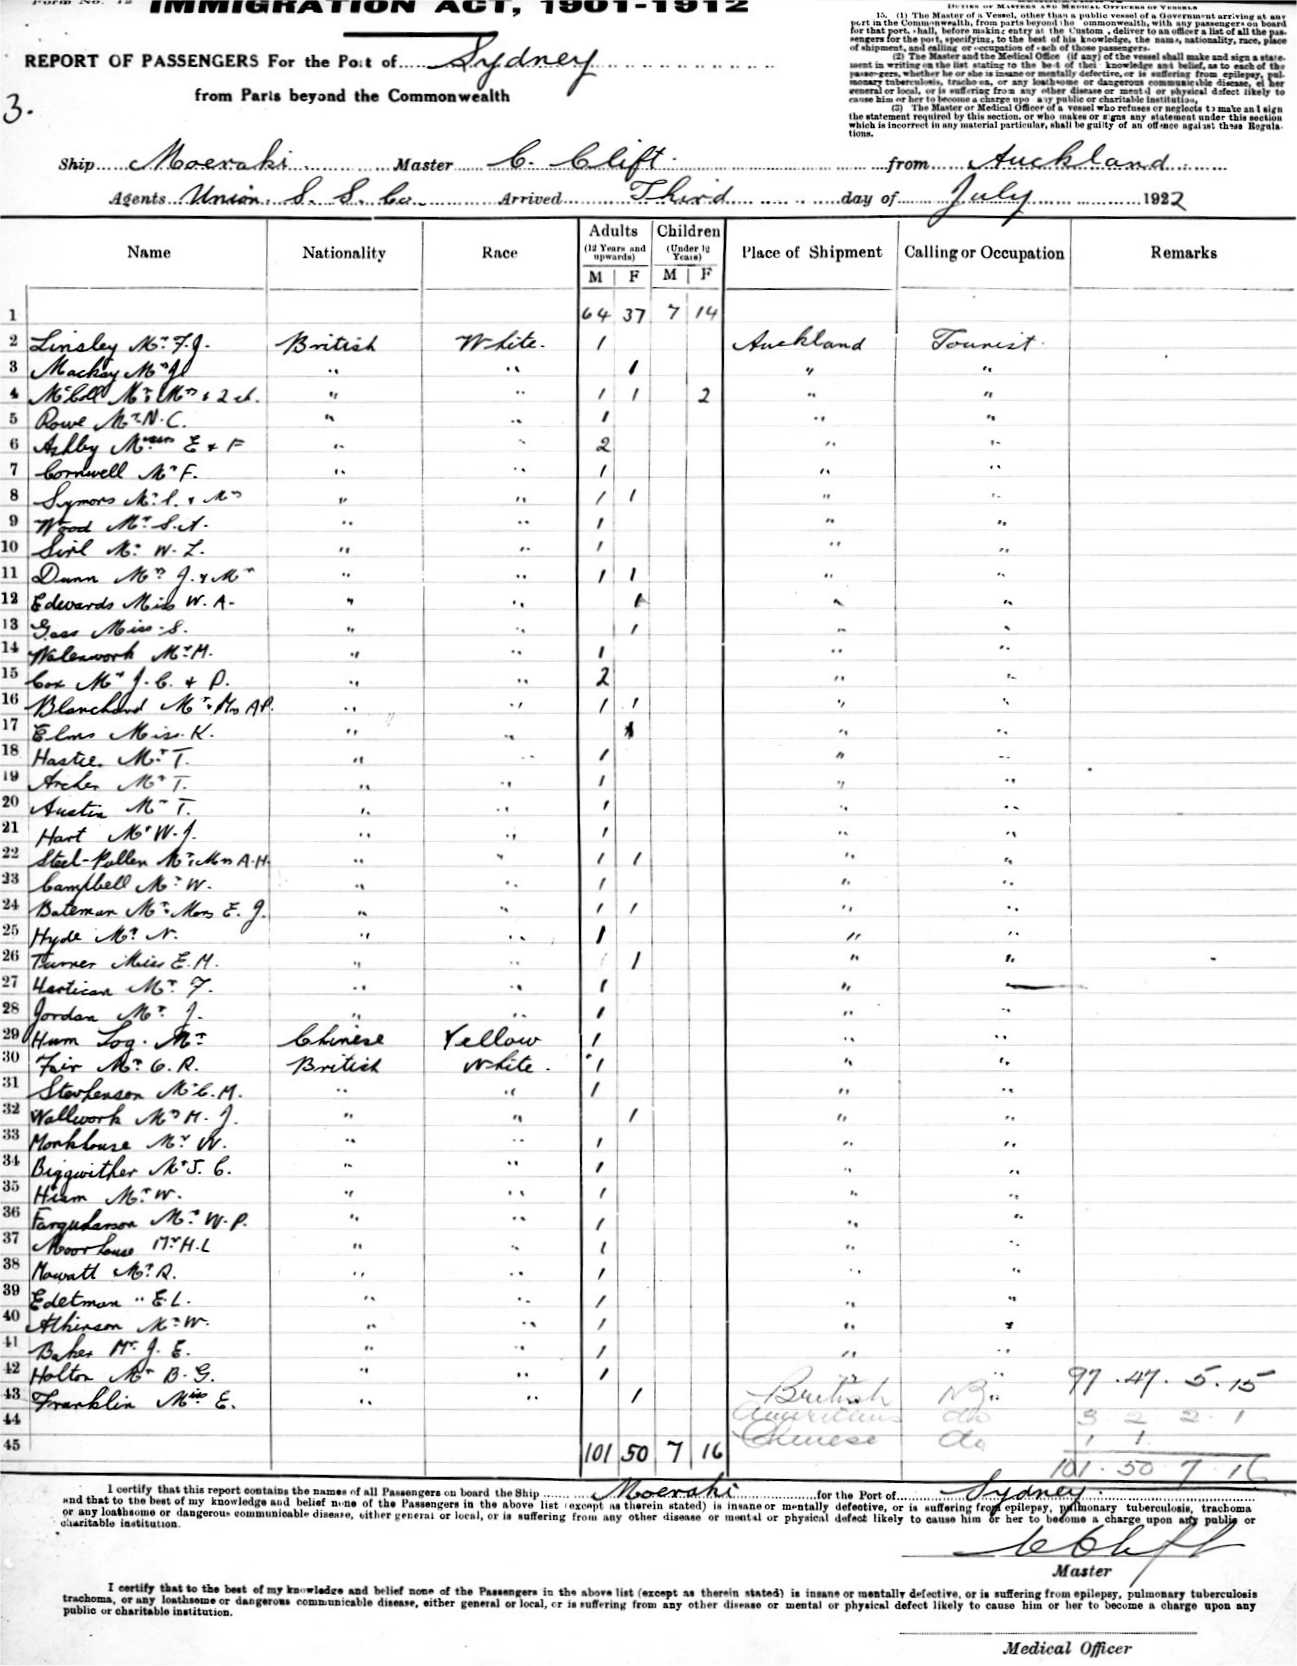 Form No. 12
IMMIGRATION ACT, 1901-1912
REPORT OF PASSENGERS For the Port of Sydney
from Parts beyond the Commonwealth
3.
DUTIES OF MASTERS AND MEDICAL OFFICERS OF VESSELS
15. (1) The Master of a Vessel, other than a public vessel of a Government arriving at any
port in the Commonwealth, from parts beyond the Commonwealth, with any passengers on board
for that port, shall, before making entry at the Custom, deliver to an officer a list of all the pas-
sengers for the port, specifying, to the best of his knowledge, the name, nationality, race, place
of shipment, and calling or occupation of each of those passengers.
(2) The Master and the Medical Office (if any) of the vessel shall make and sign a state-
ment in writing on the list stating to the best of their knowledge and belief, as to each of the
passengers, whether he or she is insane or mentally defective, or is suffering from epilepsy, pul-
monary tuberculosis, trachoma, or any loathsome or dangerous communicable disease, either
general or local, or is suffering from any other disease or mental or physical defect likely to
cause him or her to become a charge upon any public or charitable institution.
(3) The Master or Medical Officer of a vessel who refuses or neglects to make and sign
the statement required by this section, or who makes or signs any statement under this section
which is incorrect in any material particular, shall be guilty of an offence against these Regula-
tions.
Ship Moeraki Master C. Clift from Auckland
Agents Union S. S. Co Arrived Third day of July 1922
Name Nationality Race Adults (12 Years and upwards) M F Children (Under 12 Years) M F Place of Shipment Calling or Occupation Remarks
1 64 37 7 14
2 Linsley Mr. F.J. British White. 1 Auckland Tourist
3 Mackay Mrs " " 1 " "
4 McColl Mr & Mrs & 2 ch. " " 1 1 2 " "
5 Rowe Mr N. C. " " 1 " "
6 Ashby Messrs E & F " " 2 " "
7 Cornwell Mr F. " " 1 " "
8 Symons Mr. S. & Mrs " " 1 1 " "
9 Wood Mr. S.A. " " 1 " "
10 Sirl Mr W. L. " " 1 " "
11 Dunn Mr J. & Mrs " " 1 1 " "
12 Edwards Miss W. A. " " 1 " "
13 Gass Miss S. " " 1 " "
14 Mr. H. " " 1 " "
15 Cox Mr J. C. & P. " " 2 " "
16 Blanchard Mr & Mrs A.P. " " 1 1 " "
17 Elms Miss. K. " " 1 " "
18 Hastie. Mr T. " " 1 " "
19 Archer Mr T. " " 1 " "
20 Austin Mr T. " " 1 " "
21 Hart Mr W. J. " " 1 " "
22 Steel-Pullen Mr & Mrs A.H. " " 1 1 " "
23 Campbell Mr W. " " 1 " "
24 Bateman Mr & Mrs E. J. " " 1 1 " "
25 Hyde Mr. N. " " 1 " "
26 Turner Miss E. M. " " 1 " "
27 Hartican Mr. F. " " 1 " —
28 Jordan Mr. J. " " 1 " "
29 Hum Log. Mr Chinese Yellow 1 " "
30 Fair Mr. C. R. British White. 1 " "
31 Stevhenson Mr C. M. " " 1 " "
32 Wallwork Mrs H. J. " " 1 " "
33 Monkhouse Mr. W. " " 1 " "
34 Biggwither Mr S. C. " " 1 " "
35 Hism Mr. W. " " 1 " "
36 Farquharson Mr. W. P. " " 1 " "
37 Moorhouse Mr H. L " " 1 " "
38 Mowatt Mr. R. " " 1 " "
39 Edetman " E. L. " " 1 " "
40 Athinson Mr. W. " " 1 " "
41 Baker Mr. J. E. " " 1 " "
42 Holton Mr B. G. " " 1 " " 97 . 47 . 5 . 15
43 Franklin Miss E. " " 1 British "
44 Americans do 3 2 2 1
45 101 50 7 16 Chinese do 1 1
101 . 50 7 . 16
I certify that this report contains the names of all Passengers on board the Ship Moeraki for the Port of Sydney.
and that to the best of my knowledge and belief none of the Passengers in the above list (except as therein stated) is insane or mentally defective, or is suffering from epilepsy, pulmonary tuberculosis, trachoma
or any loathsome or dangerous communicable disease, either general or local, or is suffering from any other disease or mental or physical defect likely to cause him or her to become a charge upon any public or
charitable institution.
C Clift
Master
I certify that to the best of my knowledge and belief none of the Passengers in the above list (except as therein stated) is insane or mentally defective, or is suffering from epilepsy, pulmonary tuberculosis
trachoma, or any loathsome or dangerous communicable disease, either general or local, or is suffering from any other disease or mental or physical defect likely to cause him or her to become a charge upon any
public or charitable institution.
Medical Officer